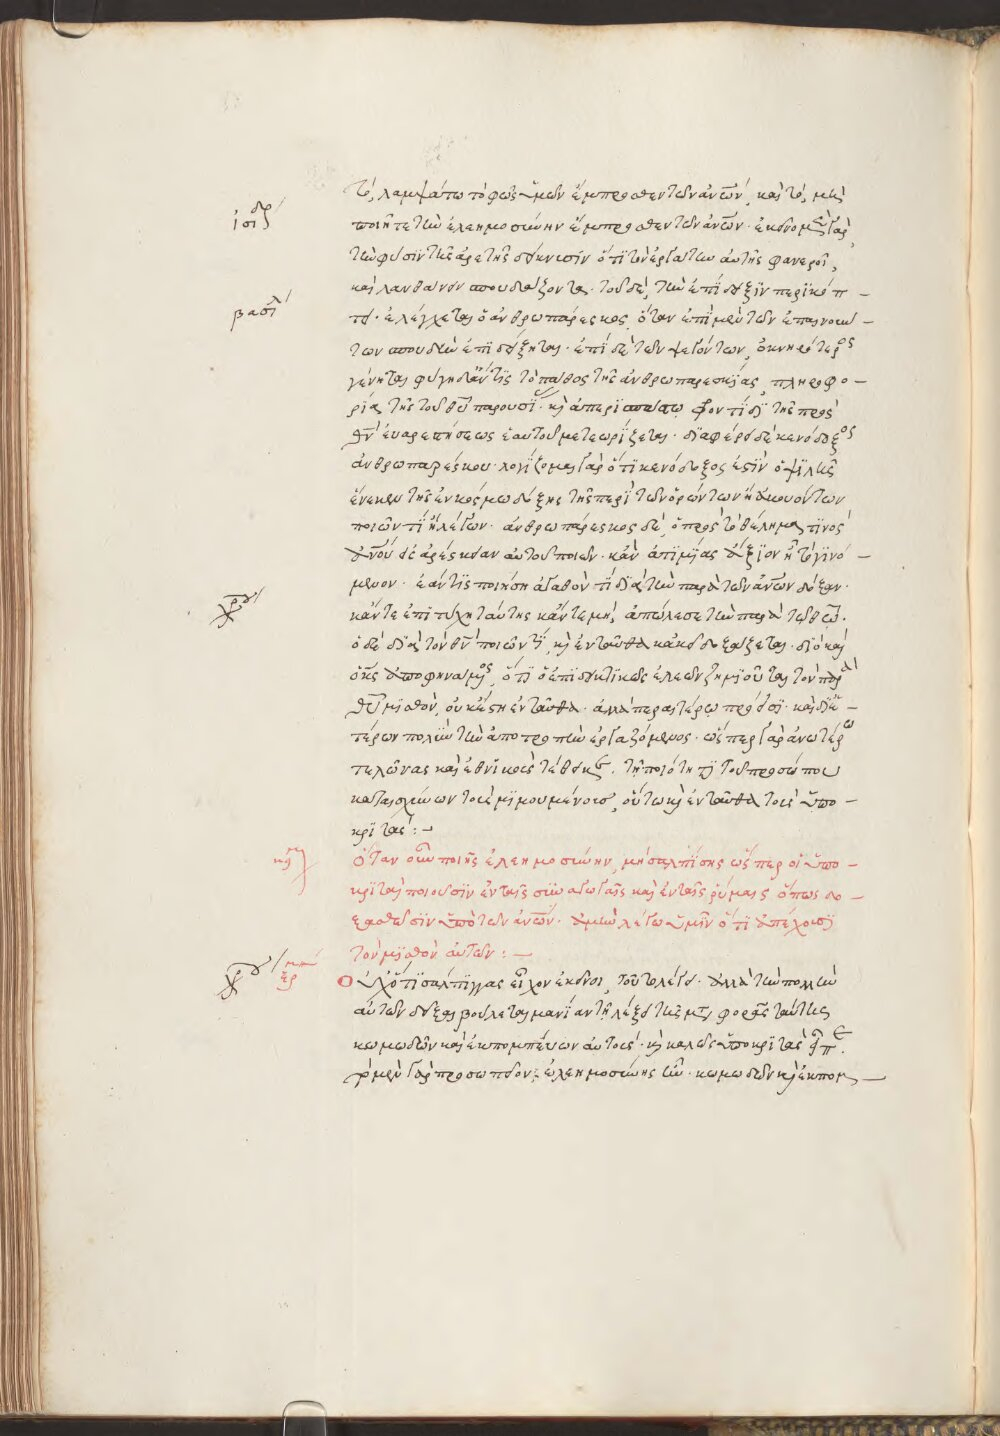 τὸ, λαμψάτω τὸ φῶς ὑμῶν ἔμπροσθεν τῶν ἀνων, καὶ τὸ, μὴ
ἰσιδρ
ποιῆτε τὴν ἐλεημοσύνην ἔμπροσθεν τῶν ἀνων· ἐκεῖνο μὲν γὰρ
τὴν φύσιν τῆς ἀρετῆς δείκνυσιν ὅτι τὸν ἐργάτην αὐτῆς φανεροῖ,
καὶ λανθάνειν σπουδάζοντα· τοῦ δὲ, τὴν ἐπίδειξιν περικόπ
βασιλ
τει· ἐλέγχεται ὁ ἀνθρωπάρεσκος, ὅταν ἐπὶ μὲν τῶν ἐπαινούν
των σπουδὴν ἐπιδείξηται· ἐπὶ δὲ τῶν ψεγόντων, ὀκνηρότερος
γένηται φύγῃ δ' ἄν τις τὸ πάθος τῆς ἀνθρωπαρεσκείας, πληροφο
ρίᾳ τῆς τοῦ θυ παρουσι κ ἀπερισπάστῳ φροντίδι τῆς πρὸς
θν εὐαρεστήσεως ἑαυτοῦ μετεωρίζεται· διαφέρει δὲ κενόδοξος
ἀνθρωπαρέσκου· λογίζομαι γὰρ ὅτι κενόδοξος ἐστὶν ὁ ψιλῆς
ἕνεκεν τῆς ἐν κόσμω δόξης τῆς περὶ τῶν ὁρώντων ἢ ἀκουόντων
ποιῶν τι ἢ λέγων· ἀνθρωπάρεσκος δὲ, ὁ πρὸς τὸ θέλημα τινὸς
ἀνου εἰς ἀρέσκειαν αὐτοῦ ποιῶν· κἂν ἀτιμίας ἄξιον ᾖ τὸ γινό
μενον· ἐάν τις ποιήσῃ ἀγαθόν τι διὰ τὴν παρὰ τῶν ἀνων δόξαν·
χρυ
κἄν τε ἐπιτύχῃ ταύτης κἄν τε μὴ, ἀπώλεσε τὴν παρὰ τῷ θω·
ὁ δὲ διὰ τὸν θν ποιῶν τι, κ ἐνταῦθα κἀκεῖ δοξάζεται· διὸ καὶ
ὁ κς ἀποφηνάμενος, ὅτι ὁ ἐπιδεικτικῶς ἐλεῶν ζημιοῦται τὸν παρὰ
θυ μισθὸν, οὐκ ἔστη ἐνταῦθα· ἀλλὰ περαιτέρω πρόεισι· καὶ δι' ἑ
τέρων πολλὴν τὴν ἀποτροπὴν ἐργαζόμενος· ὥσπερ γὰρ ἀνωτέρω
τελώνας καὶ ἐθνικοὺς τέθεικε, τῇ ποιότητι τοῦ προσώπου
καταισχύνων τοὺς μιμουμένους, οὕτω κ ἐνταῦθα τοὺς ὑπο
κριτάς:
κμ
ὅταν οὖν ποιῇς ἐλεημοσύνην, μὴ σαλπίσῃς ὥσπερ οἱ ὑπο
κριταὶ ποιοῦσιν ἐν ταῖς συναγωγαῖς καὶ ἐν ταῖς ῥύμαις ὅπως δο
ξασθῶσιν ὑπὸ τῶν ἀνων· ἀμὴν λέγω ὑμῖν ὅτι ἀπέχουσι
τὸν μισθὸν αὐτῶν:
χρυ
ἑρ
οὐχ ὅτι σάλπιγγας εἶχον ἐκεῖνοι, τοῦτο λέγει· ἀλλὰ τὴν πολλὴν
αὐτῶν δεῖξαι βούλεται μανίαν τῇ λέξει τῆς μεταφορᾶς ταύτης
κωμωδῶν καὶ ἐκπομπεύων αὐτοὺς· κ καλῶς ὑποκριτὰς εἶπε·
μὲν γὰρ προσωπεῖον, ἐλεημοσύνης ἦν· κωμωδῶν κ ἐκπομ